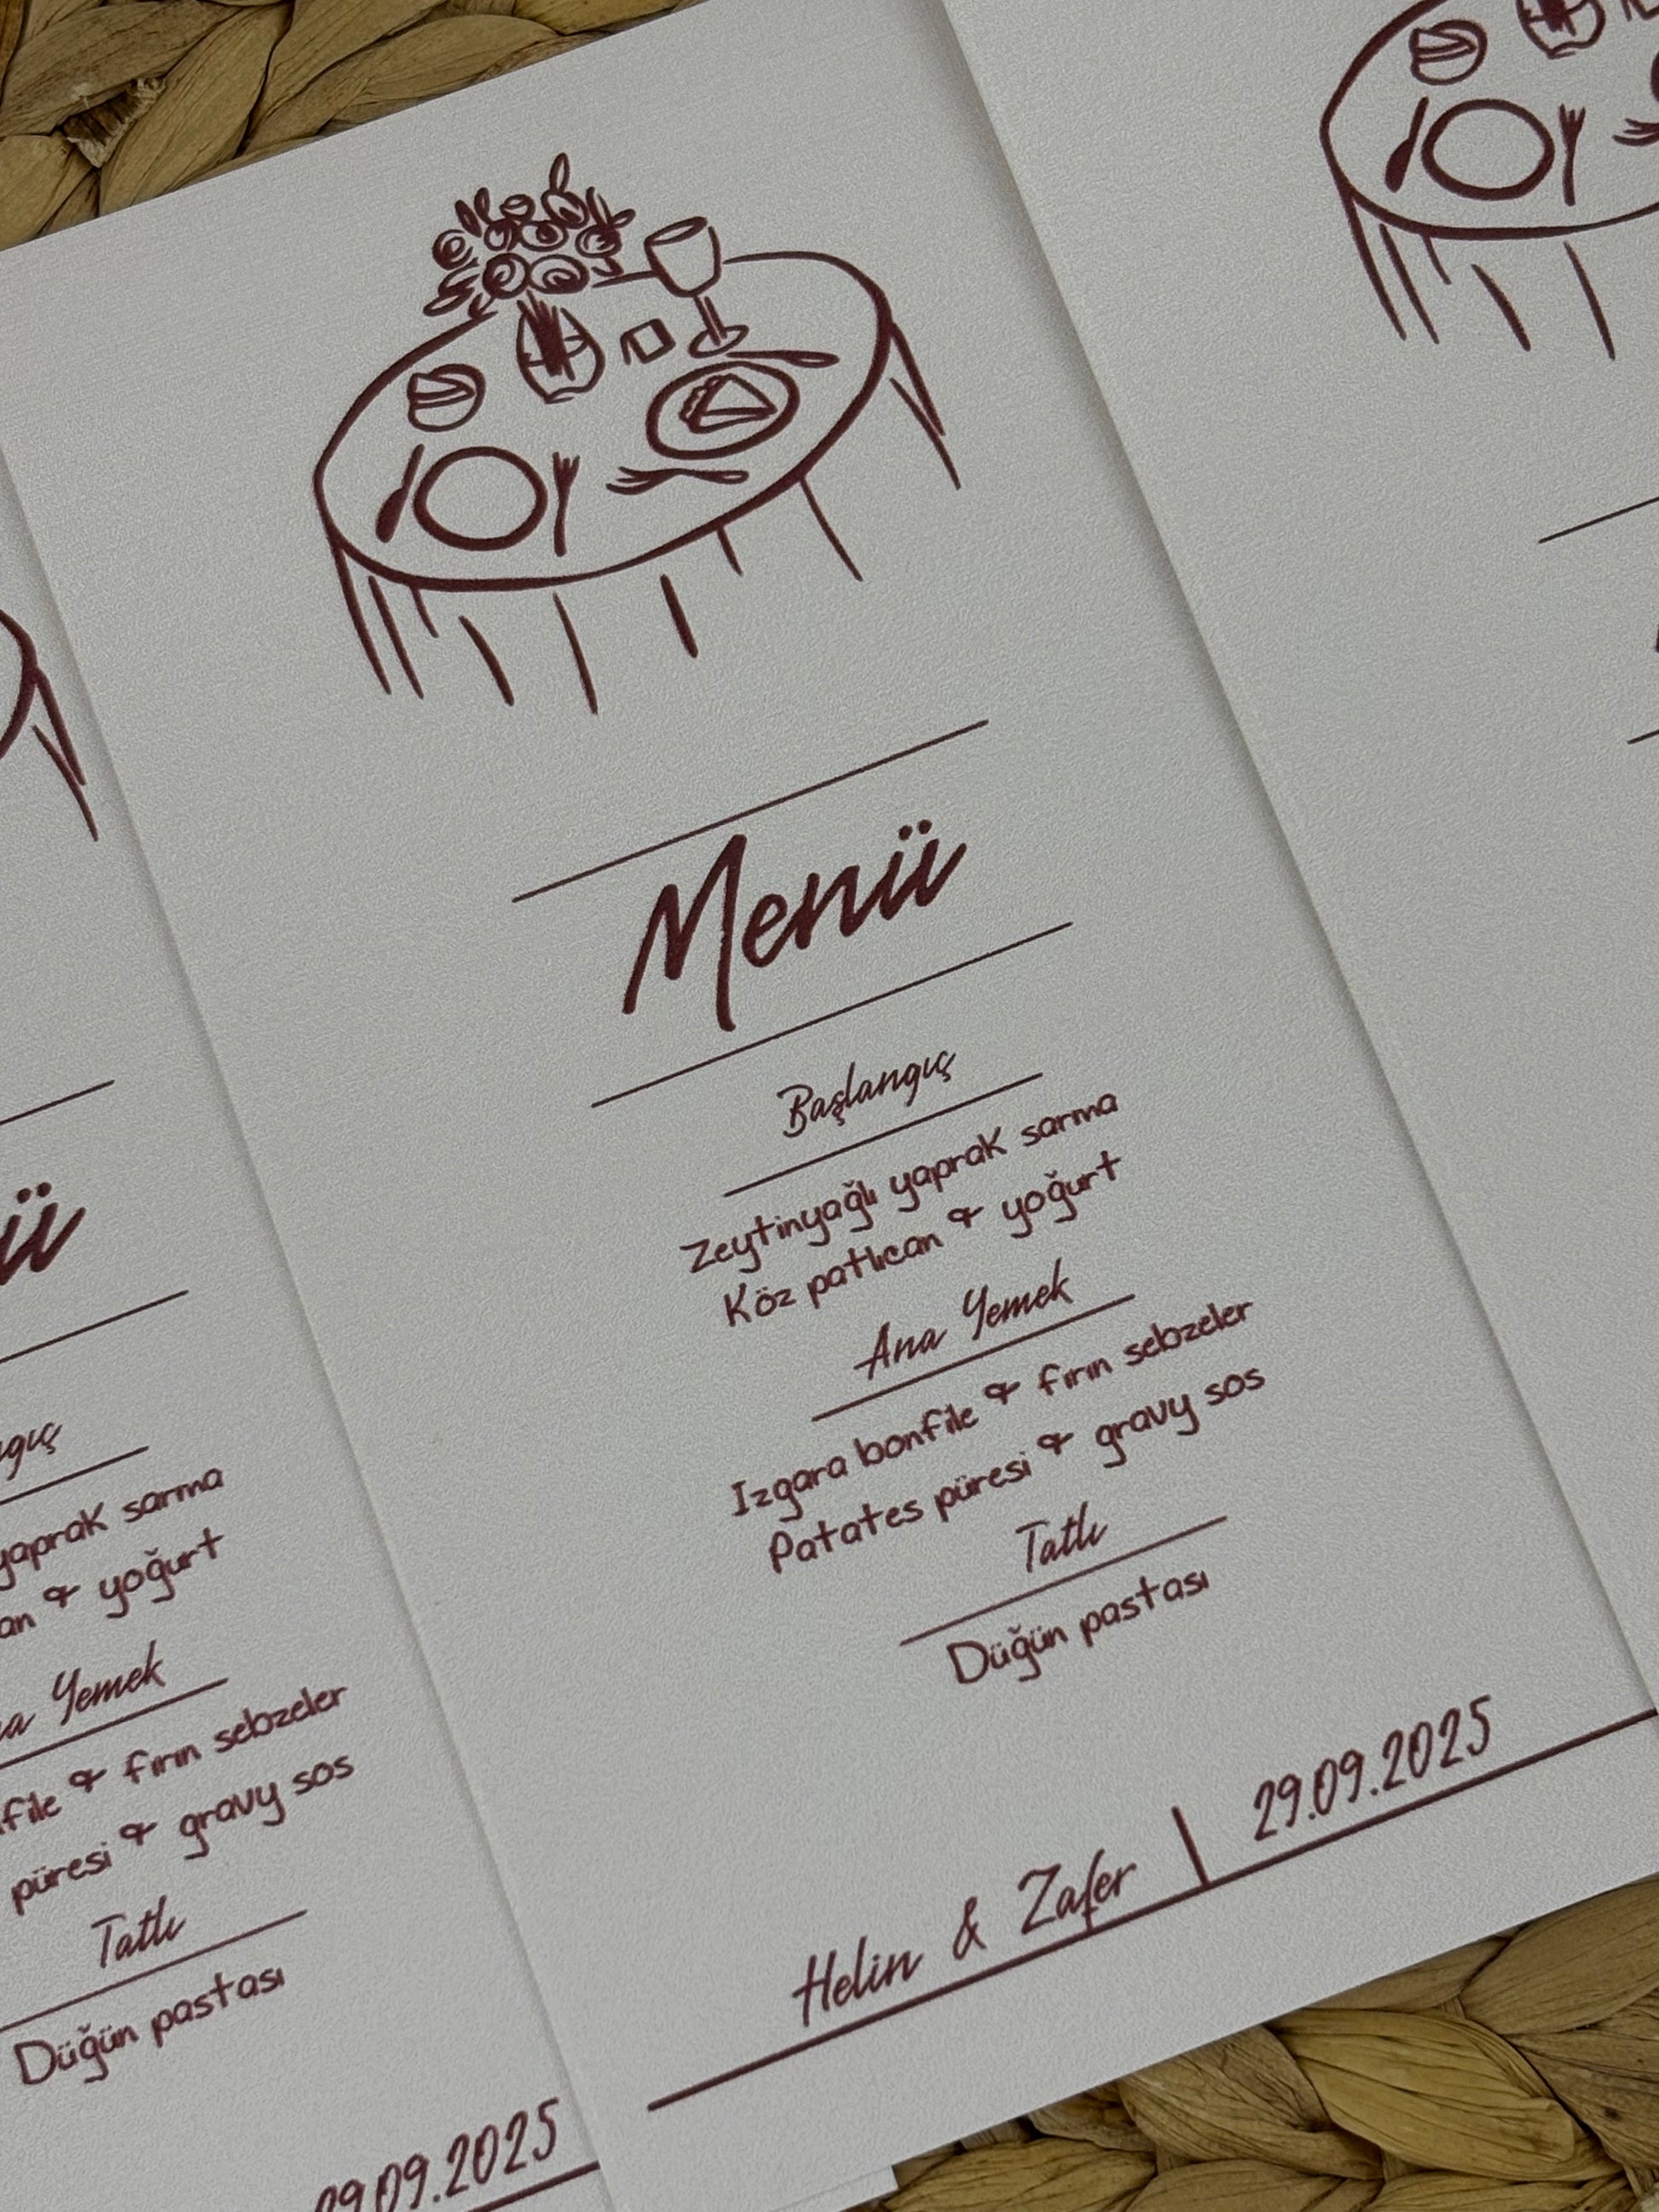 Menü
Başlangıç
Zeytinyağlı yaprak sarma
Köz patlıcan & yoğurt
Ana Yemek
Izgara bonfile & fırın sebzeler
Patates püresi & gravy sos
Tatlı
Düğün pastası
Helin & Zafer | 29.09.2025
yaprak sarma
& yoğurt
Yemek
& fırın sebzeler
püresi & gravy sos
Tatlı
Düğün pastası
09.2025